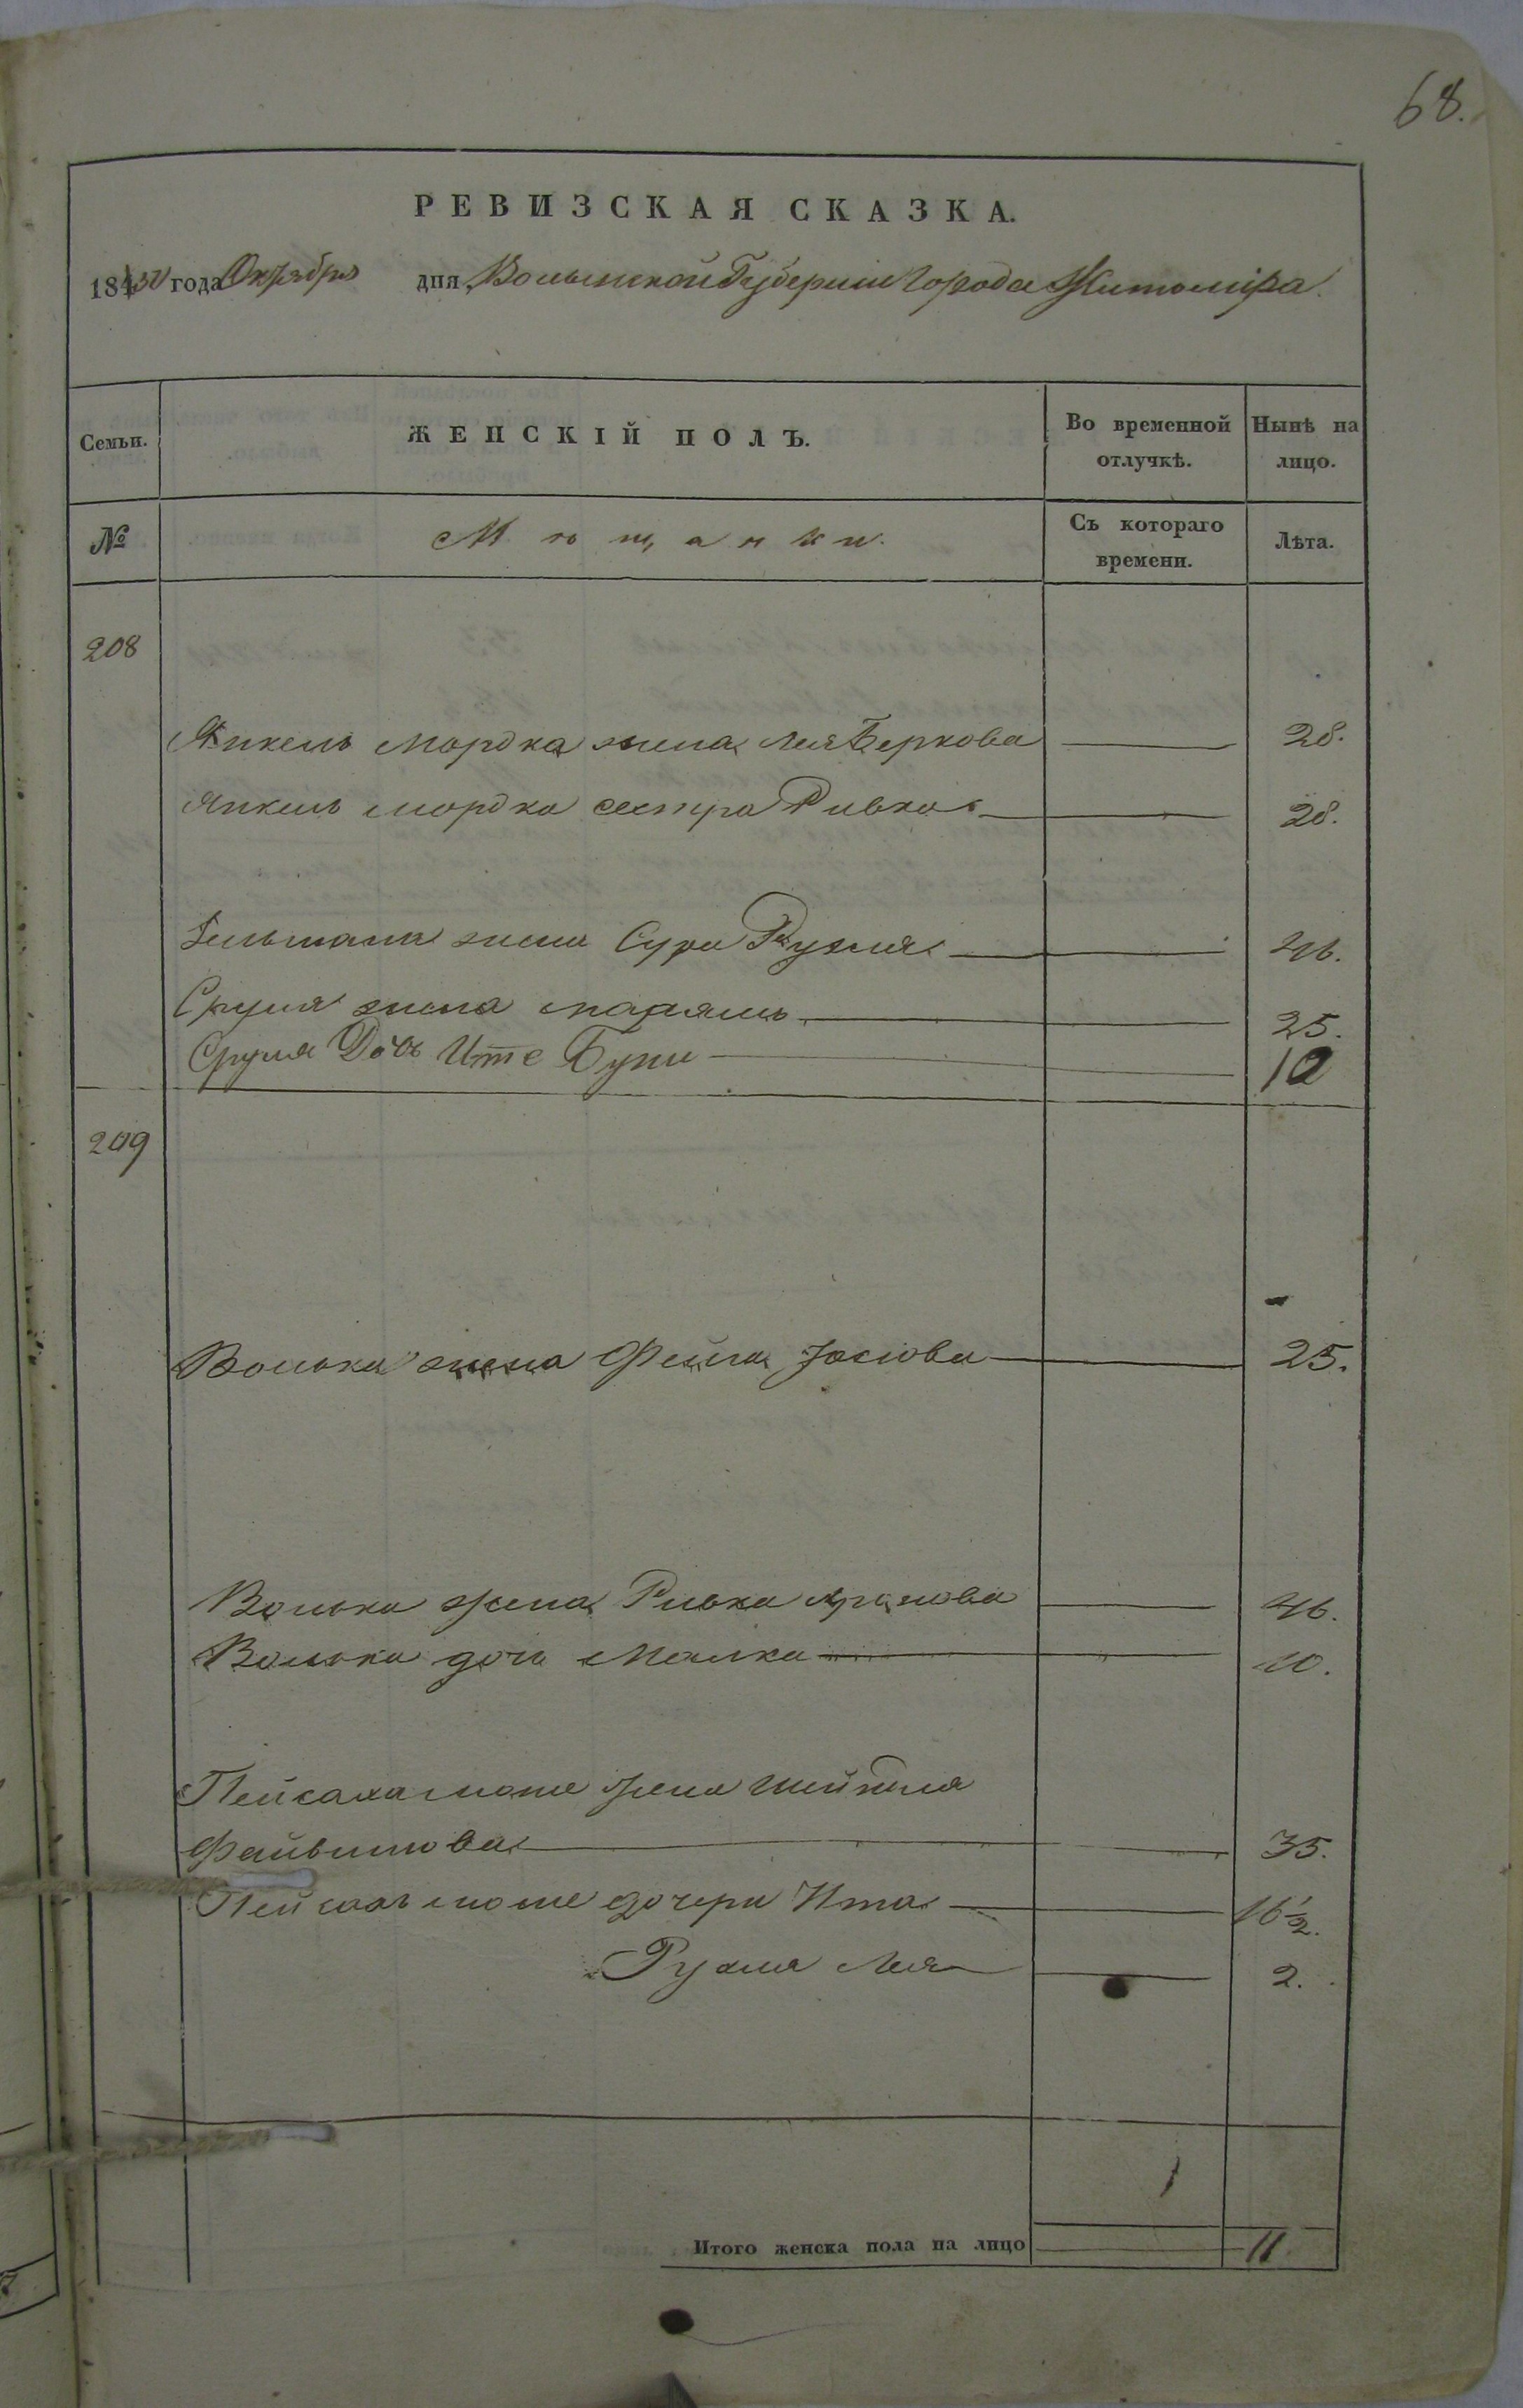 68.
РЕВИЗСКАЯ СКАЗКА.
1850 года Октября дня Волынской Губернии Города Житомира.
Семьи.
ЖЕНСКІЙ ПОЛЪ.
Во временной отлучкѣ.
Нынѣ на лицо.
№
Мѣщанки.
Съ котораго времени.
Лѣта.
208
Янкель Мордка жена Лея Беркова 28.
Янкель Мордка сестра Ривка 28.
жена Сура Рухля 46.
Сруля жена Маріямъ 25.
Сруля Дочь Ите Буни 10
209
Волька жена Фейга Іосіова 25.
Волька жена Ривка Аронова 46.
Волька дочь Малка 10.
Пейсаха Моше жена Шейндля
Файвишова 35.
Пейсахъ Моше дочери Ита 16 1/2.
Рухля Лея 2.
Итого женска пола на лицо 11